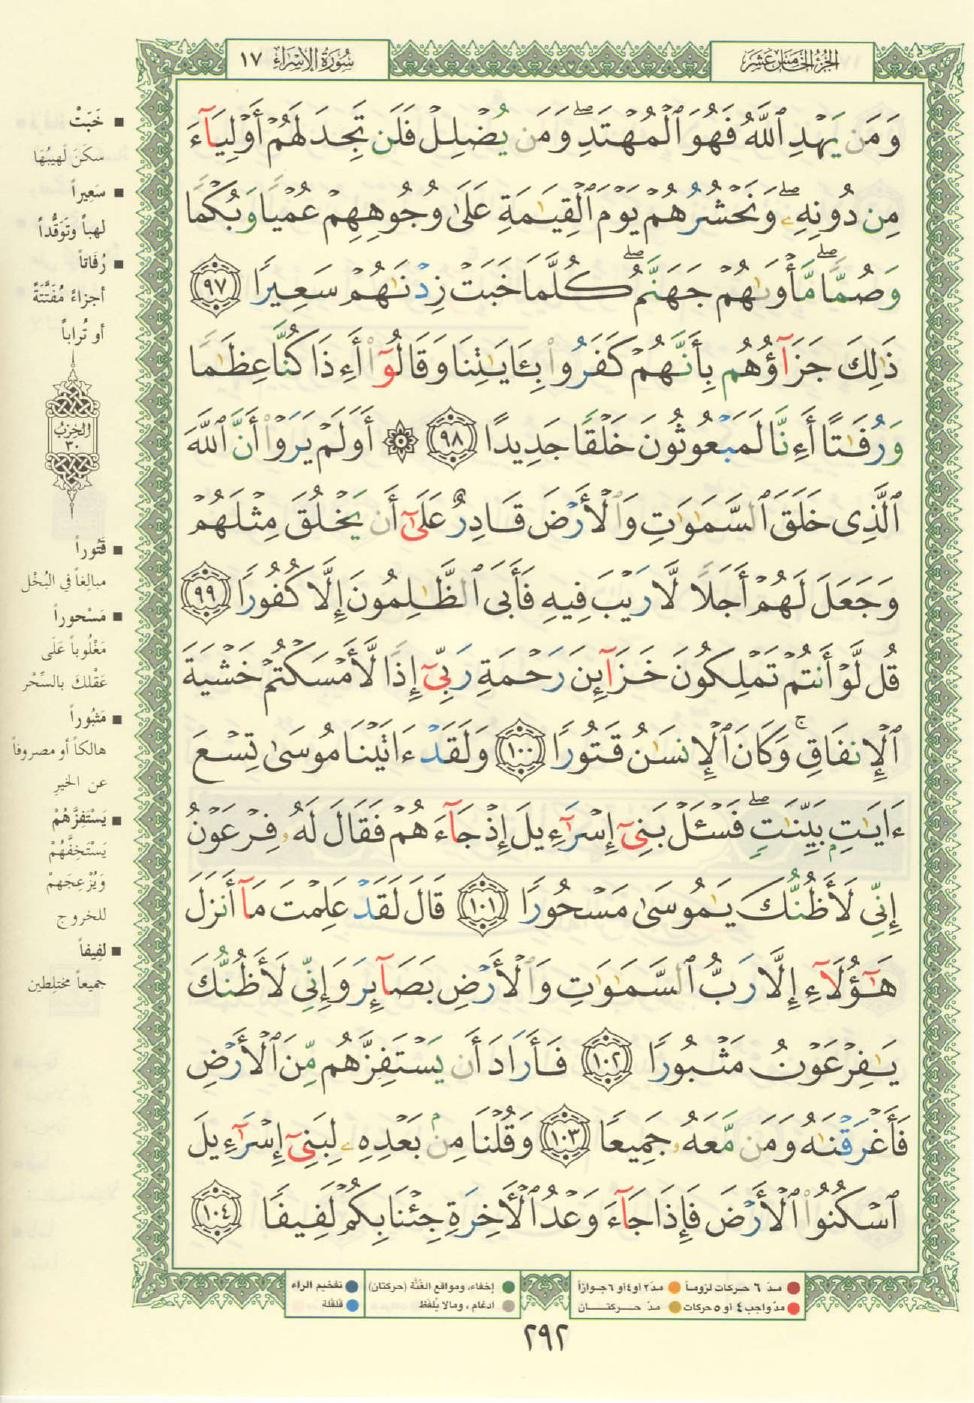 الجزء الخامس عشر
سورة الإسراء ١٧
وَمَن يَهْدِ ٱللَّهُ فَهُوَ ٱلْمُهْتَدِ ۖ وَمَن يُضْلِلْ فَلَن تَجِدَ لَهُمْ أَوْلِيَآءَ
مِن دُونِهِۦ ۖ وَنَحْشُرُهُمْ يَوْمَ ٱلْقِيَـٰمَةِ عَلَىٰ وُجُوهِهِمْ عُمْيًا وَبُكْمًا
وَصُمًّا ۖ مَّأْوَىٰهُمْ جَهَنَّمُ ۖ كُلَّمَا خَبَتْ زِدْنَـٰهُمْ سَعِيرًا ٩٧
ذَٰلِكَ جَزَآؤُهُم بِأَنَّهُمْ كَفَرُوا۟ بِـَٔايَـٰتِنَا وَقَالُوٓا۟ أَءِذَا كُنَّا عِظَـٰمًا
وَرُفَـٰتًا أَءِنَّا لَمَبْعُوثُونَ خَلْقًا جَدِيدًا ٩٨ ۞ أَوَلَمْ يَرَوْا۟ أَنَّ ٱللَّهَ
ٱلَّذِى خَلَقَ ٱلسَّمَـٰوَٰتِ وَٱلْأَرْضَ قَادِرٌ عَلَىٰٓ أَن يَخْلُقَ مِثْلَهُمْ
وَجَعَلَ لَهُمْ أَجَلًا لَّا رَيْبَ فِيهِ فَأَبَى ٱلظَّـٰلِمُونَ إِلَّا كُفُورًا ٩٩
قُل لَّوْ أَنتُمْ تَمْلِكُونَ خَزَآئِنَ رَحْمَةِ رَبِّىٓ إِذًا لَّأَمْسَكْتُمْ خَشْيَةَ
ٱلْإِنفَاقِ ۚ وَكَانَ ٱلْإِنسَـٰنُ قَتُورًا ١٠٠ وَلَقَدْ ءَاتَيْنَا مُوسَىٰ تِسْعَ
ءَايَـٰتٍۭ بَيِّنَـٰتٍ ۖ فَسْـَٔلْ بَنِىٓ إِسْرَٰٓءِيلَ إِذْ جَآءَهُمْ فَقَالَ لَهُۥ فِرْعَوْنُ
إِنِّى لَأَظُنُّكَ يَـٰمُوسَىٰ مَسْحُورًا ١٠١ قَالَ لَقَدْ عَلِمْتَ مَآ أَنزَلَ
هَـٰٓؤُلَآءِ إِلَّا رَبُّ ٱلسَّمَـٰوَٰتِ وَٱلْأَرْضِ بَصَآئِرَ وَإِنِّى لَأَظُنُّكَ
يَـٰفِرْعَوْنُ مَثْبُورًا ١٠٢ فَأَرَادَ أَن يَسْتَفِزَّهُم مِّنَ ٱلْأَرْضِ
فَأَغْرَقْنَـٰهُ وَمَن مَّعَهُۥ جَمِيعًا ١٠٣ وَقُلْنَا مِنۢ بَعْدِهِۦ لِبَنِىٓ إِسْرَٰٓءِيلَ
ٱسْكُنُوا۟ ٱلْأَرْضَ فَإِذَا جَآءَ وَعْدُ ٱلْـَٔاخِرَةِ جِئْنَا بِكُمْ لَفِيفًا ١٠٤
■ خَبَتْ
سكَنَ لَهيبُهَا
■ سَعِيراً
لهباً وتَوَقُّداً
■ رُفَاتاً
أجزاءً مُفَتَّتَةً
أو تُراباً
الحزب
٣٠
■ قَتُوراً
مبالِغاً في البُخْل
■ مَسْحوراً
مَغْلُوباً عَلَى
عَقْلكَ بالسِّحْر
■ مَثبُوراً
هالكاً أو مصروفاً
عن الخير
■ يَسْتَفِزَّهُمْ
يَسْتَخِفَّهُمْ
وَيُزْعِجَهمْ
للخروج
■ لفِيفاً
جميعاً مختلِطين
مدّ ٦ حركات لزوماً
مدّ ٢ أو ٤ أو ٦ جوازاً
إخفاء، ومواقع الغُنَّة (حركتان)
تفخيم الراء
مدّ واجب ٤ أو ٥ حركات
مدّ حركتان
ادغام، ومالا يُلفَظ
قلقلة
٢٩٢